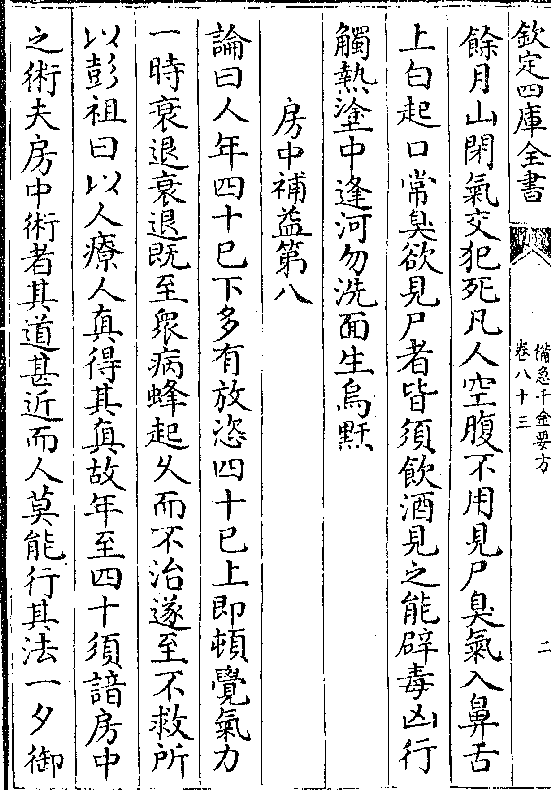 欽定四庫全書
備急千金要方
卷八十三
二
餘月山閉氣交犯死凡人空腹不用見尸臭氣入鼻舌
上白起口常臭欲見尸者皆須飲酒見之能辟毒凶行
觸熱塗中逢河勿洗面生烏䵟
房中補益第八
論曰人年四十已下多有放恣四十已上即頓覺氣力
一時衰退衰退既至衆病蜂起乆而不治遂至不救所
以彭祖曰以人療人真得其真故年至四十須諳房中
之術夫房中術者其道甚近而人莫能行其法一夕御